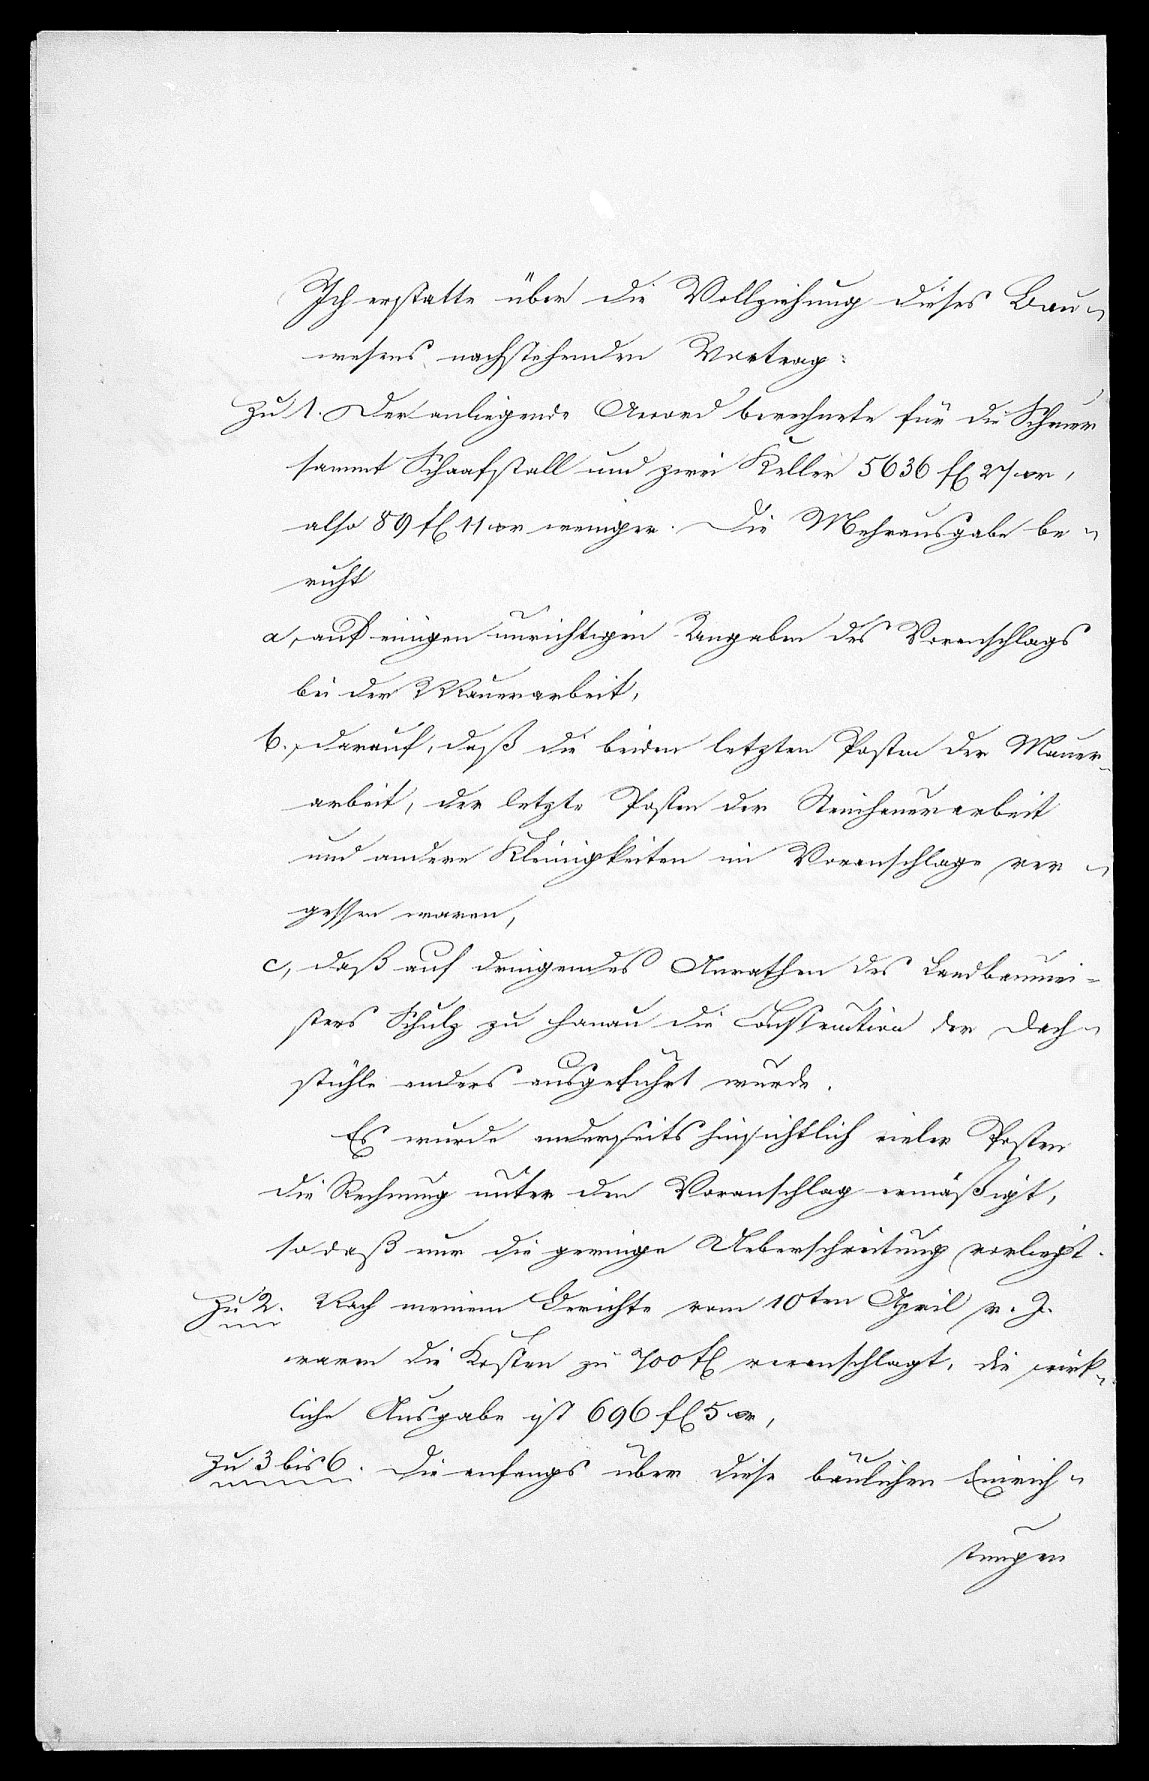 Ich erstatte über die Vollziehung dieses Bau-
wesens nachstehenden Vortrag:
Zu 1. Der anliegende Accord berechnete für die Scheuer
sammt Schaafstall und zwei Keller 5636 fl 27 xr,
also 89 fl 11 xr weniger. Die Mehrausgabe be-
ruht
a, auf einigen unrichtigen Angaben des Voranschlags
bei der Mauerarbeit,
b., darauf, daß die beiden letzten Posten der Mauer-
arbeit, der letzte Posten der Steinhauerarbeit
und andere Kleinigkeiten im Voranschlage ver-
gessen waren,
c, daß auf dringendes Anrathen des Landbaumei-
sters Schulz zu Hanau die Construction der Dach-
stühle anders ausgeführt wurde.
Es wurde anderseits hinsichtlich vieler Posten
die Rechnung unter den Voranschlag ermäßigt,
so daß nur die geringe Ueberschreitung vorliegt.
Zu 2. Nach meinem Berichte vom 10ten April v. J.
waren die Kosten zu 700 fl veranschlagt, die wirk-
liche Ausgabe ist 696 fl 5 xr,
Zu 3 bis 6. Die anfangs über diese baulichen Einrich-
tungen